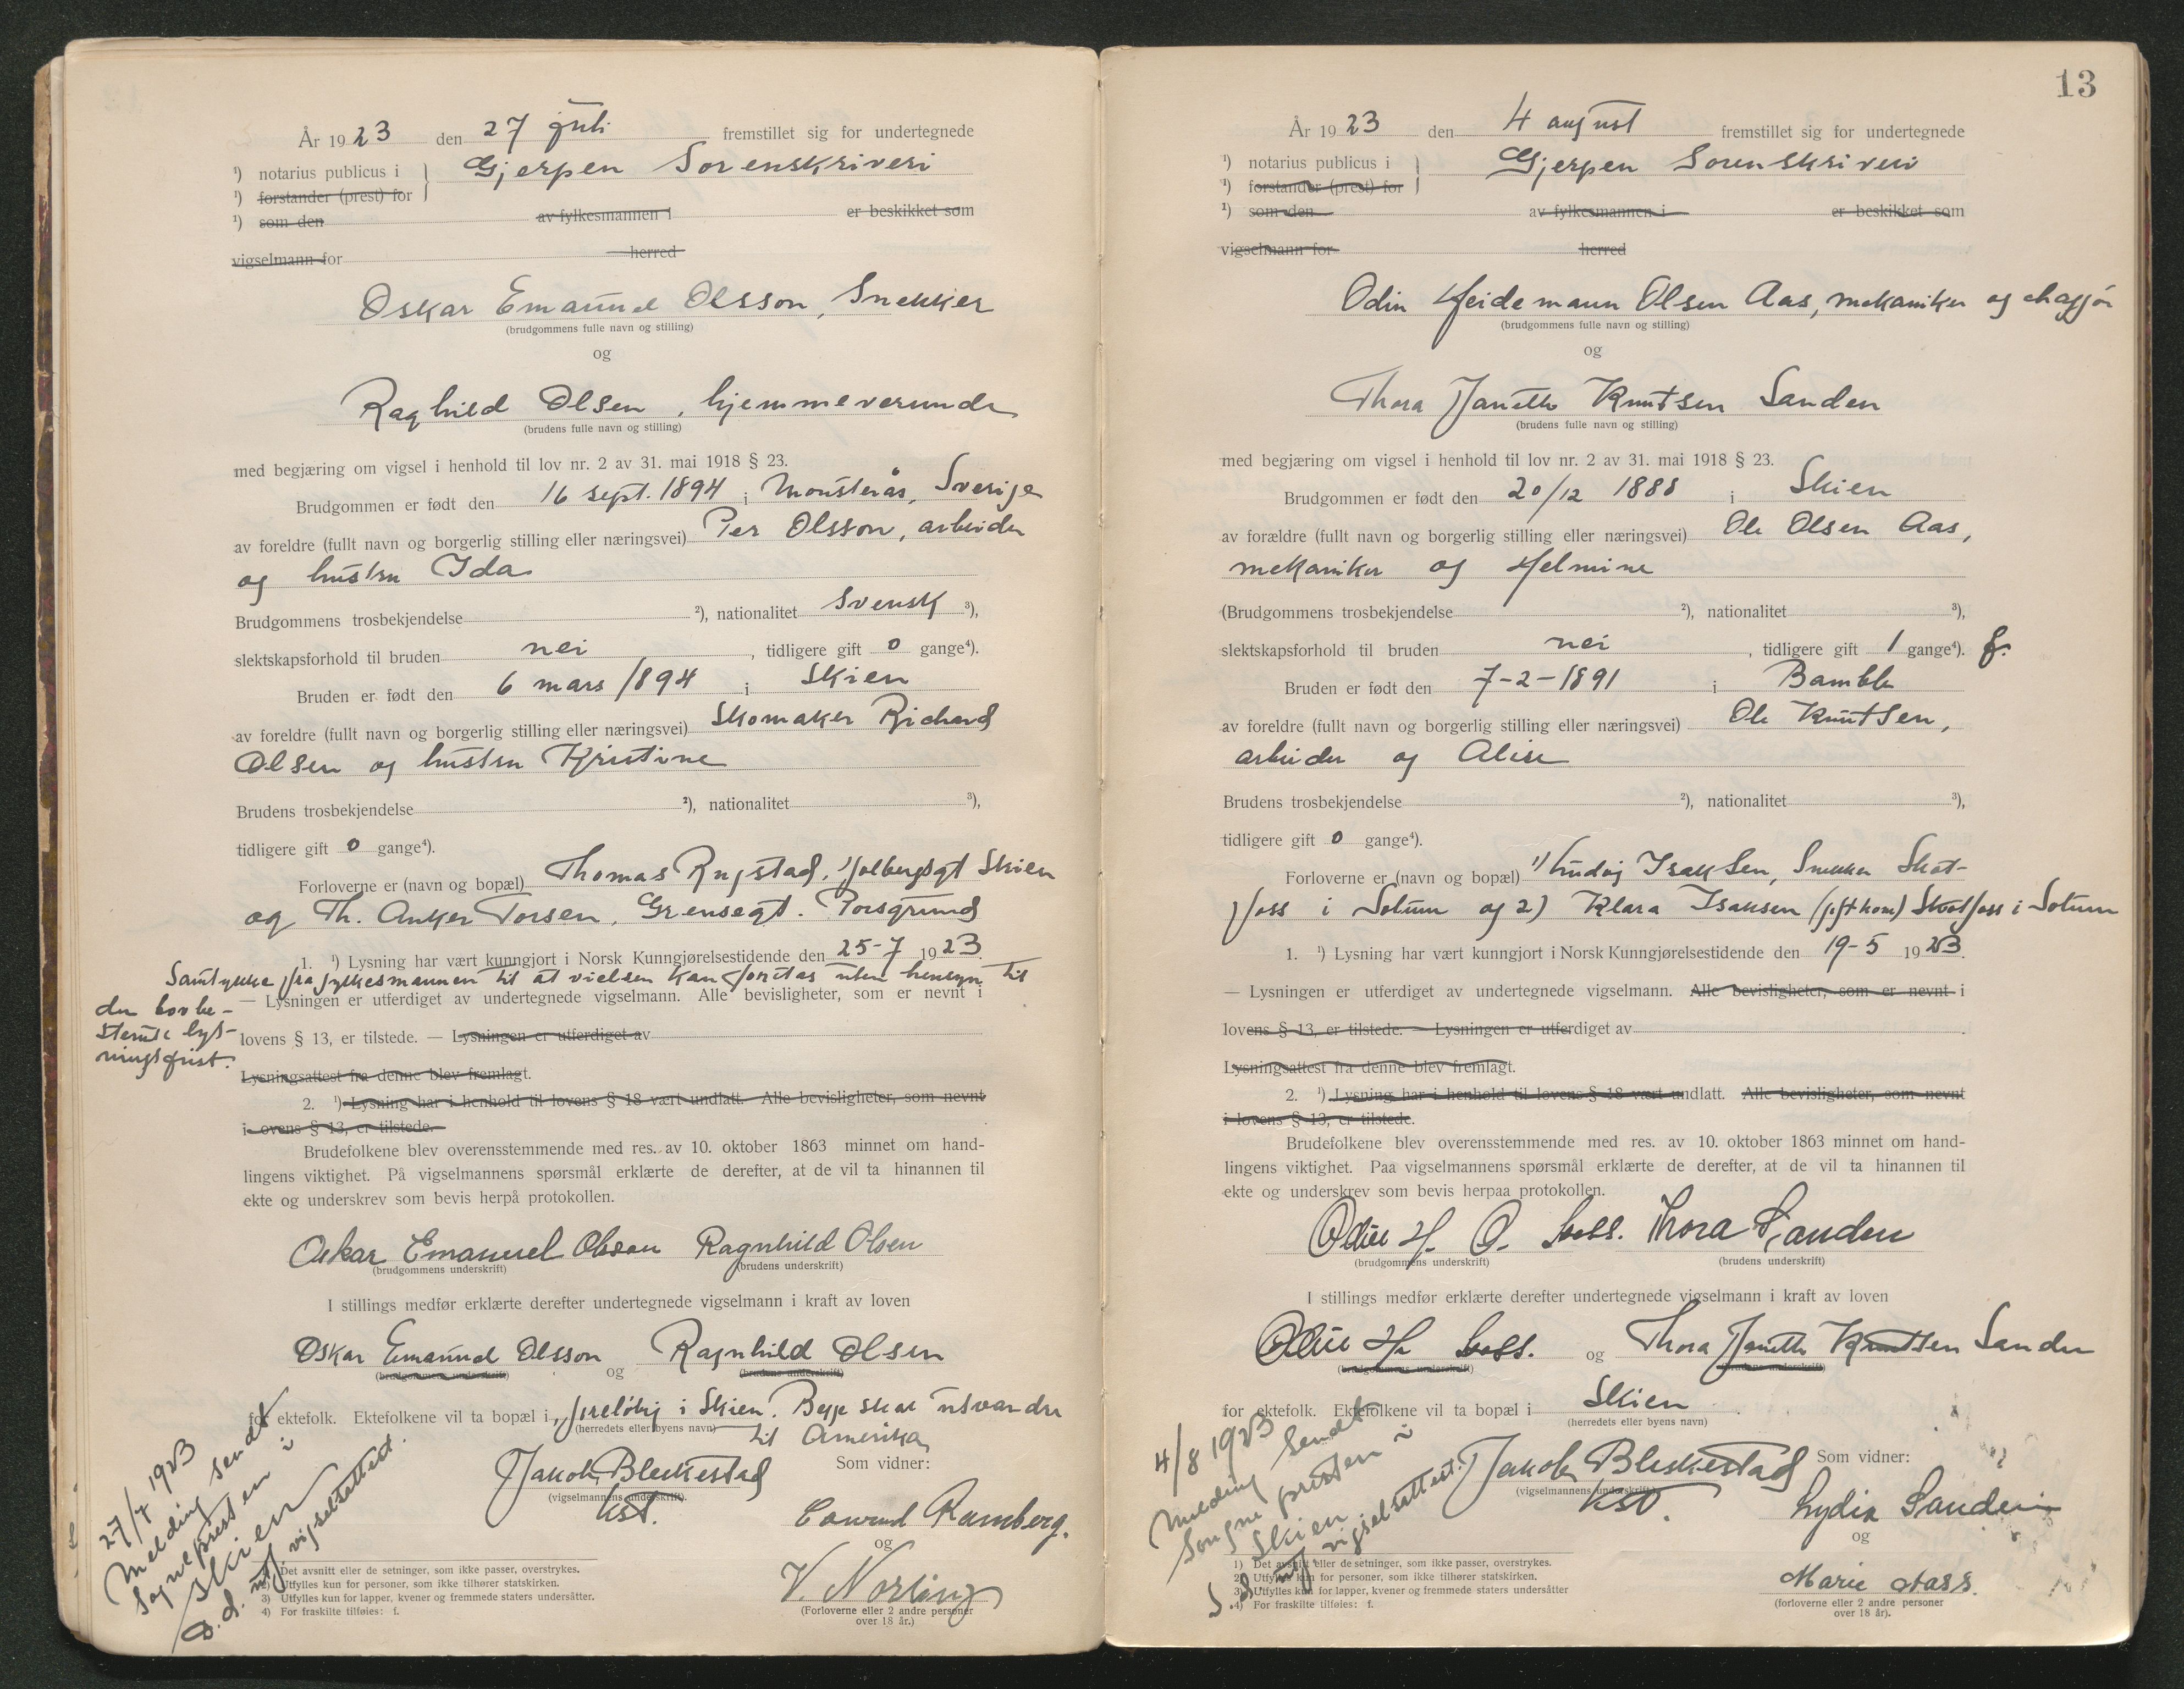 År 1923 den 27 juli fremstillet sig for undertegnede
¹) notarius publicus i } Gjerpen Sorenskriveri
¹) forstander (prest) for
¹) som den av fylkesmannen i er beskikket som
vigselmann for herred
Oskar Emanuel Olsson, Snekker
(brudgommens fulle navn og stilling)
og
Raghild Olsen, hjemmeverende
(brudens fulle navn og stilling)
med begjæring om vigsel i henhold til lov nr. 2 av 31. mai 1918 § 23.
Brudgommen er født den 16 sept. 1894 i Mönsterås, Sverige
av foreldre (fullt navn og borgerlig stilling eller næringsvei) Per Olsson, arbeider
og hustru Ida
Brudgommens trosbekjendelse ²), nationalitet Svensk ³),
slektskapsforhold til bruden nei, tidligere gift 0 gange⁴).
Bruden er født den 6 mars 1894 i Skien
av foreldre (fullt navn og borgerlig stilling eller næringsvei) Skomaker Richard
Olsen og hustru Kristine
Brudens trosbekjendelse ²), nationalitet ³),
tidligere gift 0 gange⁴).
Forloverne er (navn og bopæl) Thomas Rugstad, Holbergsgt Skien
og Th. Anker Torsen, Grensegt. Porsgrund
1. ¹) Lysning har vært kunngjort i Norsk Kunngjørelsestidende den 25-7 1923.
Samtykke fra fylkesmannen til at vielsen kan foretas uten hensyn til
den lovbe-
stemte lys-
ningsfrist.
— Lysningen er utferdiget av undertegnede vigselmann. Alle bevisligheter, som er nevnt i
lovens § 13, er tilstede. — Lysningen er utferdiget av
Lysningsattest fra denne blev fremlagt.
2. ¹) Lysning har i henhold til lovens § 18 vært undlatt. Alle bevisligheter, som nevnt
i lovens § 13, er tilstede.
Brudefolkene blev overensstemmende med res. av 10. oktober 1863 minnet om hand-
lingens viktighet. På vigselmannens spørsmål erklærte de derefter, at de vil ta hinannen til
ekte og underskrev som bevis herpå protokollen.
Oskar Emanuel Olsson Ragnhild Olsen
(brudgommens underskrift) (brudens underskrift)
I stillings medfør erklærte derefter undertegnede vigselmann i kraft av loven
Oskar Emanuel Olsson og Ragnhild Olsen
(brudgommens underskrift) (brudens underskrift)
for ektefolk. Ektefolkene vil ta bopæl i foreløbig i Skien. Begge skal utvandre
(herredets eller byens navn) til Amerika
Jakob Bleskestad
(vigselmannens underskrift).
kst.
Som vidner:
Conrad Ramberg.
og
V. Norling
(Forloverne eller 2 andre personer
over 18 år.)
27/7 1923
Melding sendt
Sognepresten i
Skien
D.d. utf. vigselsattest.
1) Det avsnitt eller de setninger, som ikke passer, overstrykes.
2) Utfylles kun for personer, som ikke tilhører statskirken.
3) Utfylles kun for lapper, kvener og fremmede staters undersåtter.
4) For fraskilte tilføies: f.
13
År 1923 den 4 august fremstillet sig for undertegnede
¹) notarius publicus i } Gjerpen Sorenskriveri
¹) forstander (prest) for
¹) som den av fylkesmannen i er beskikket som
vigselmann for herred
Odin Heidemann Olsen Aas, mekaniker og chaffør
(brudgommens fulle navn og stilling)
og
Thora Janette Knutsen Sanden
(brudens fulle navn og stilling)
med begjæring om vigsel i henhold til lov nr. 2 av 31. mai 1918 § 23.
Brudgommen er født den 20/12 1888 i Skien
av forældre (fullt navn og borgerlig stilling eller næringsvei) Ole Olsen Aas,
mekaniker og Helmine
(Brudgommens trosbekjendelse ²), nationalitet ³),
slektskapsforhold til bruden nei, tidligere gift 1 gange⁴). f.
Bruden er født den 7-2-1891 i Bamble
av foreldre (fullt navn og borgerlig stilling eller næringsvei) Ole Knutsen,
arbeider og Alise
Brudens trosbekjendelse ²), nationalitet ³),
tidligere gift 0 gange⁴).
Forloverne er (navn og bopæl) 1) Ludvig Isaksen, Snekker Skot-
foss i Solum og 2) Klara Isaksen (gift kone) Skotfoss i Solum
1. ¹) Lysning har vært kunngjort i Norsk Kunngjørelsestidende den 19-5 1923.
— Lysningen er utferdiget av undertegnede vigselmann. Alle bevisligheter, som er nevnt i
lovens § 13, er tilstede. — Lysningen er utferdiget av
Lysningsattest fra denne blev fremlagt.
2. ¹) Lysning har i henhold til lovens § 18 vært undlatt. Alle bevisligheter, som nevnt
i lovens § 13, er tilstede.
Brudefolkene blev overensstemmende med res. av 10. oktober 1863 minnet om hand-
lingens viktighet. Paa vigselmannens spørsmål erklærte de derefter, at de vil ta hinannen til
ekte og underskrev som bevis herpaa protokollen.
Odin H. O. Aass. Thora Sanden
(brudgommens underskrift) (brudens underskrift)
I stillings medfør erklærte derefter undertegnede vigselmann i kraft av loven
Odin H. Aass. og Thora Janette Knutsen Sanden
(brudgommens underskrift) (brudens underskrift)
for ektefolk. Ektefolkene vil ta bopæl i Skien
(herredets eller byens navn)
Jakob Bleskestad
(vigselmannens underskrift).
kst.
Som vidner:
Lydia Sanden
og
Marie Aass.
(forloverne eller 2 andre personer
over 18 år).
4/8 1923
Melding sendt
Sognepresten i
Skien
S.d. utf. vigselsattest.
1) Det avsnitt eller de setninger, som ikke passer, overstrykes.
2) Utfylles kun for personer, som ikke tilhører statskirken.
3) Utfylles kun for lapper, kvener og fremmede staters undersåtter
4) For fraskilte tilføies: f.